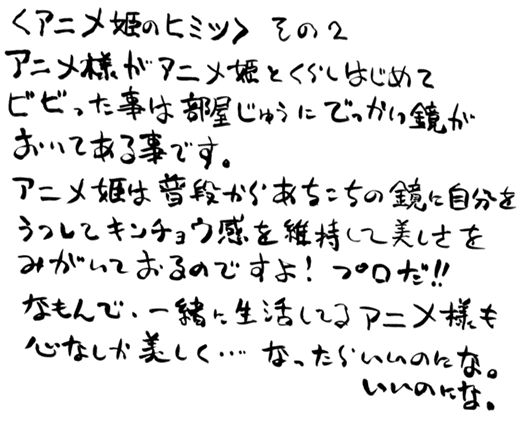 〈アニメ姫のヒミツ〉 その2
アニメ様がアニメ姫とくらしはじめて
ビビった事は部屋じゅうにでっかい鏡が
おいてある事です。
アニメ姫は普段からあちこちの鏡に自分を
うつしてキンチョウ感を維持して美しさを
みがいておるのですよ!プロだ!!
なもんで、一緒に生活してるアニメ様も
心なしか美しく…なったらいいのにな。
いいのにな。